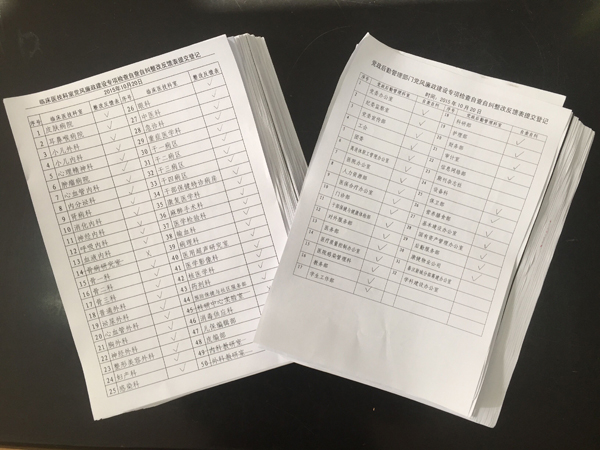 临床医技科室党风廉政建设专项检查自查自纠整改反馈表提交登记
2015年10月20日
序号 临床医技科室 整改反馈表 序号 临床医技科室 整改反馈表
1 皮肤病院 26 眼科
2 耳鼻喉病院 27 中医科
3 小儿外科 28 急诊科
4 小儿内科 29 重症医学科
5 心理精神科 30 干一病区
6 肿瘤病院 31 干二病区
7 心血管内科 32 干三病区
8 内分泌科 33 十四病区
9 肾病科 34 干部保健特诊病房
10 消化内科 35 康复医学科
11 神经内科 36 麻醉手术科
12 呼吸内科 37 医学检验科
13 血液内科 38 输血科
14 骨病研究室 39 病理科
15 骨一科 40 医用超声研究室
16 骨二科 41 医学影像科
17 骨三科 42 核医学科
18 普通外科 43 药剂科
19 泌尿外科 44
20 心血管外科 45 科研中心实验室
21 胸外科 46 消毒供应科
22 神经外科 47 人保编辑部
23 整形美容外科 48 皮编部
24 妇产科 49 内科教研室
25 感染科 50 外科教研室
党政后勤管理部门党风廉政建设专项检查自查自纠整改反馈表提交登记
时间：2015年10月20日
序号 党政后勤管理科室
1 党委办公室 18 科研部
2 纪委监察室 19 护理部
3 党委宣传部 20 财务部
4 工会 21 审计室
5 团委 22
6 23
7 医院办公室 24 设备科
8 人力资源部 25 保卫部
9 医保合作办公室 26 营养膳食部
10 门诊部 27 基本建设办公室
11 28 国有资产管理办公室
12 对外服务部 29 后勤服务部
13 医务部 30
14 医疗质量控制办公室 31
15 医院感染管理科 32 学科建设办公室
16 教务部
17 学生工作部